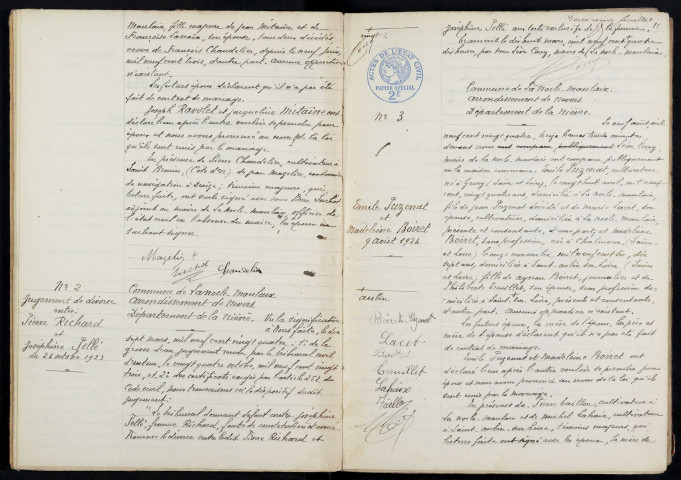 Maulaix, fille majeure de Jean Mitaine et de
Françoise Lacroix, son épouse, tous deux décédés,
veuve de François Chandelier, depuis le neuf juin
mil neuf cent trois, d'autre part. Aucune opposition
n'existant.
Les futurs époux déclarent qu'il n'a pas été
fait de contrat de mariage.
Joseph Ravolet et Jacqueline Mitaine ont
déclaré l'un après l'autre vouloir se prendre pour
époux et nous avons prononcé au nom de la loi
qu'ils sont unis par le mariage.
En présence de Pierre Chandelier, cultivateur à
Saint (Côte d'Or) et Jean Mazelin,
de navigation à témoins majeurs, qui,
lecture faite, ont avec nous Pierre
adjoint au maire de La Nocle-Maulaix, officier de
l'état civil en l'absence du maire,
sachant signer.
Mazelin
Chandelier
N° 2
Jugement de divorce
entre
Pierre Richard
et
Joséphine Pelli
du 24 octobre 1923
Commune de La Nocle-Maulaix
Arrondissement de Nevers
Département de la Nièvre. Vu la signification
à nous faite, le dix
sept mars, mil neuf cent vingt quatre, 1° de la
grosse d'un jugement rendu par le tribunal civil
le vingt quatre octobre, mil neuf cent vingt
trois, et 2° des certificats exigés par l'article 252 du
Code civil, nous transcrivons ici le dispositif dudit
jugement:
"Le tribunal donnant défaut contre Joséphine
Pelli, femme Richard, faute de
Prononce le divorce entre ledit Pierre Richard et
ACTES DE L'ÉTAT CIVIL
PAPIER SPÉCIAL
2F
N° 3
Emile Puzenat
et
Madeleine Boiret
9 août 1924
Boiret
Lacet
Treuillet
Lahaix
feuillet
Joséphine Pelli aux torts exclusifs de la femme.
Transcrit le dix huit mars, mil neuf cent vingt quatre
dix heures, par nous Jean Cury, maire de La Nocle-Maulaix.
Commune de La Nocle-Maulaix
Arrondissement de Nevers
Département de la Nièvre.
Le neuf août mil
neuf cent vingt quatre, treize heures trente minutes,
devant nous Jean Cury,
maire de La Nocle-Maulaix ont comparu publiquement
en la maison commune, Emile Puzenat, cultivateur
né à (Saône et Loire), le vingt huit avril, mil neuf
cent, vingt quatre ans, domicilié à La Nocle-Maulaix,
fils de Jean Puzenat décédé et de Marie Lacet, son
épouse, cultivatrice, domiciliée à La Nocle-Maulaix,
présente et consentante, d'une part; et Madeleine
Boiret, sans profession, née à Chalmoux (Saône
et Loire), le onze novembre, mil neuf cent six, dix
sept ans, domiciliée à Saint-Aubin-sur-Loire (Saône
et Loire), fille de Boiret, journalier et de
Philiberte Treuillet, son épouse, sans profession,
domiciliés à Saint-Aubin-sur-Loire, présents et consentants,
d'autre part. Aucune opposition n'existant.
Les futurs époux, la mère de l'époux, les père et
mère de l'épouse déclarent qu'il n'a pas été fait
de contrat de mariage.
Emile Puzenat et Madeleine Boiret ont
déclaré l'un après l'autre vouloir se prendre pour
époux et nous avons prononcé au nom de la loi qu'ils
sont unis par le mariage.
En présence de Pierre cultivateur à
La Nocle-Maulaix et de Michel Lahaix, cultivateur
à Saint-Aubin-sur-Loire, témoins majeurs, qui,
lecture faite ont signé avec les époux, la mère de